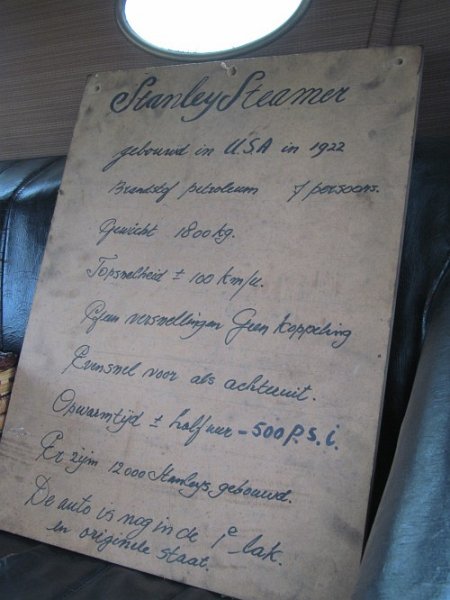 Stanley Steamer
gebouwd in U.S.A in 1922
Brandstof petroleum 7 persoons.
Gewicht 1800 kg.
Topsnelheid ± 100 km/u.
Geen versnellingen Geen Koppeling
Evensnel voor als achteruit.
Opwarmtijd ± half uur - 500 P.S.i.
Er zijn 12000 Stanleys gebouwd.
De auto is nog in de 1e lak.
en originele staat.